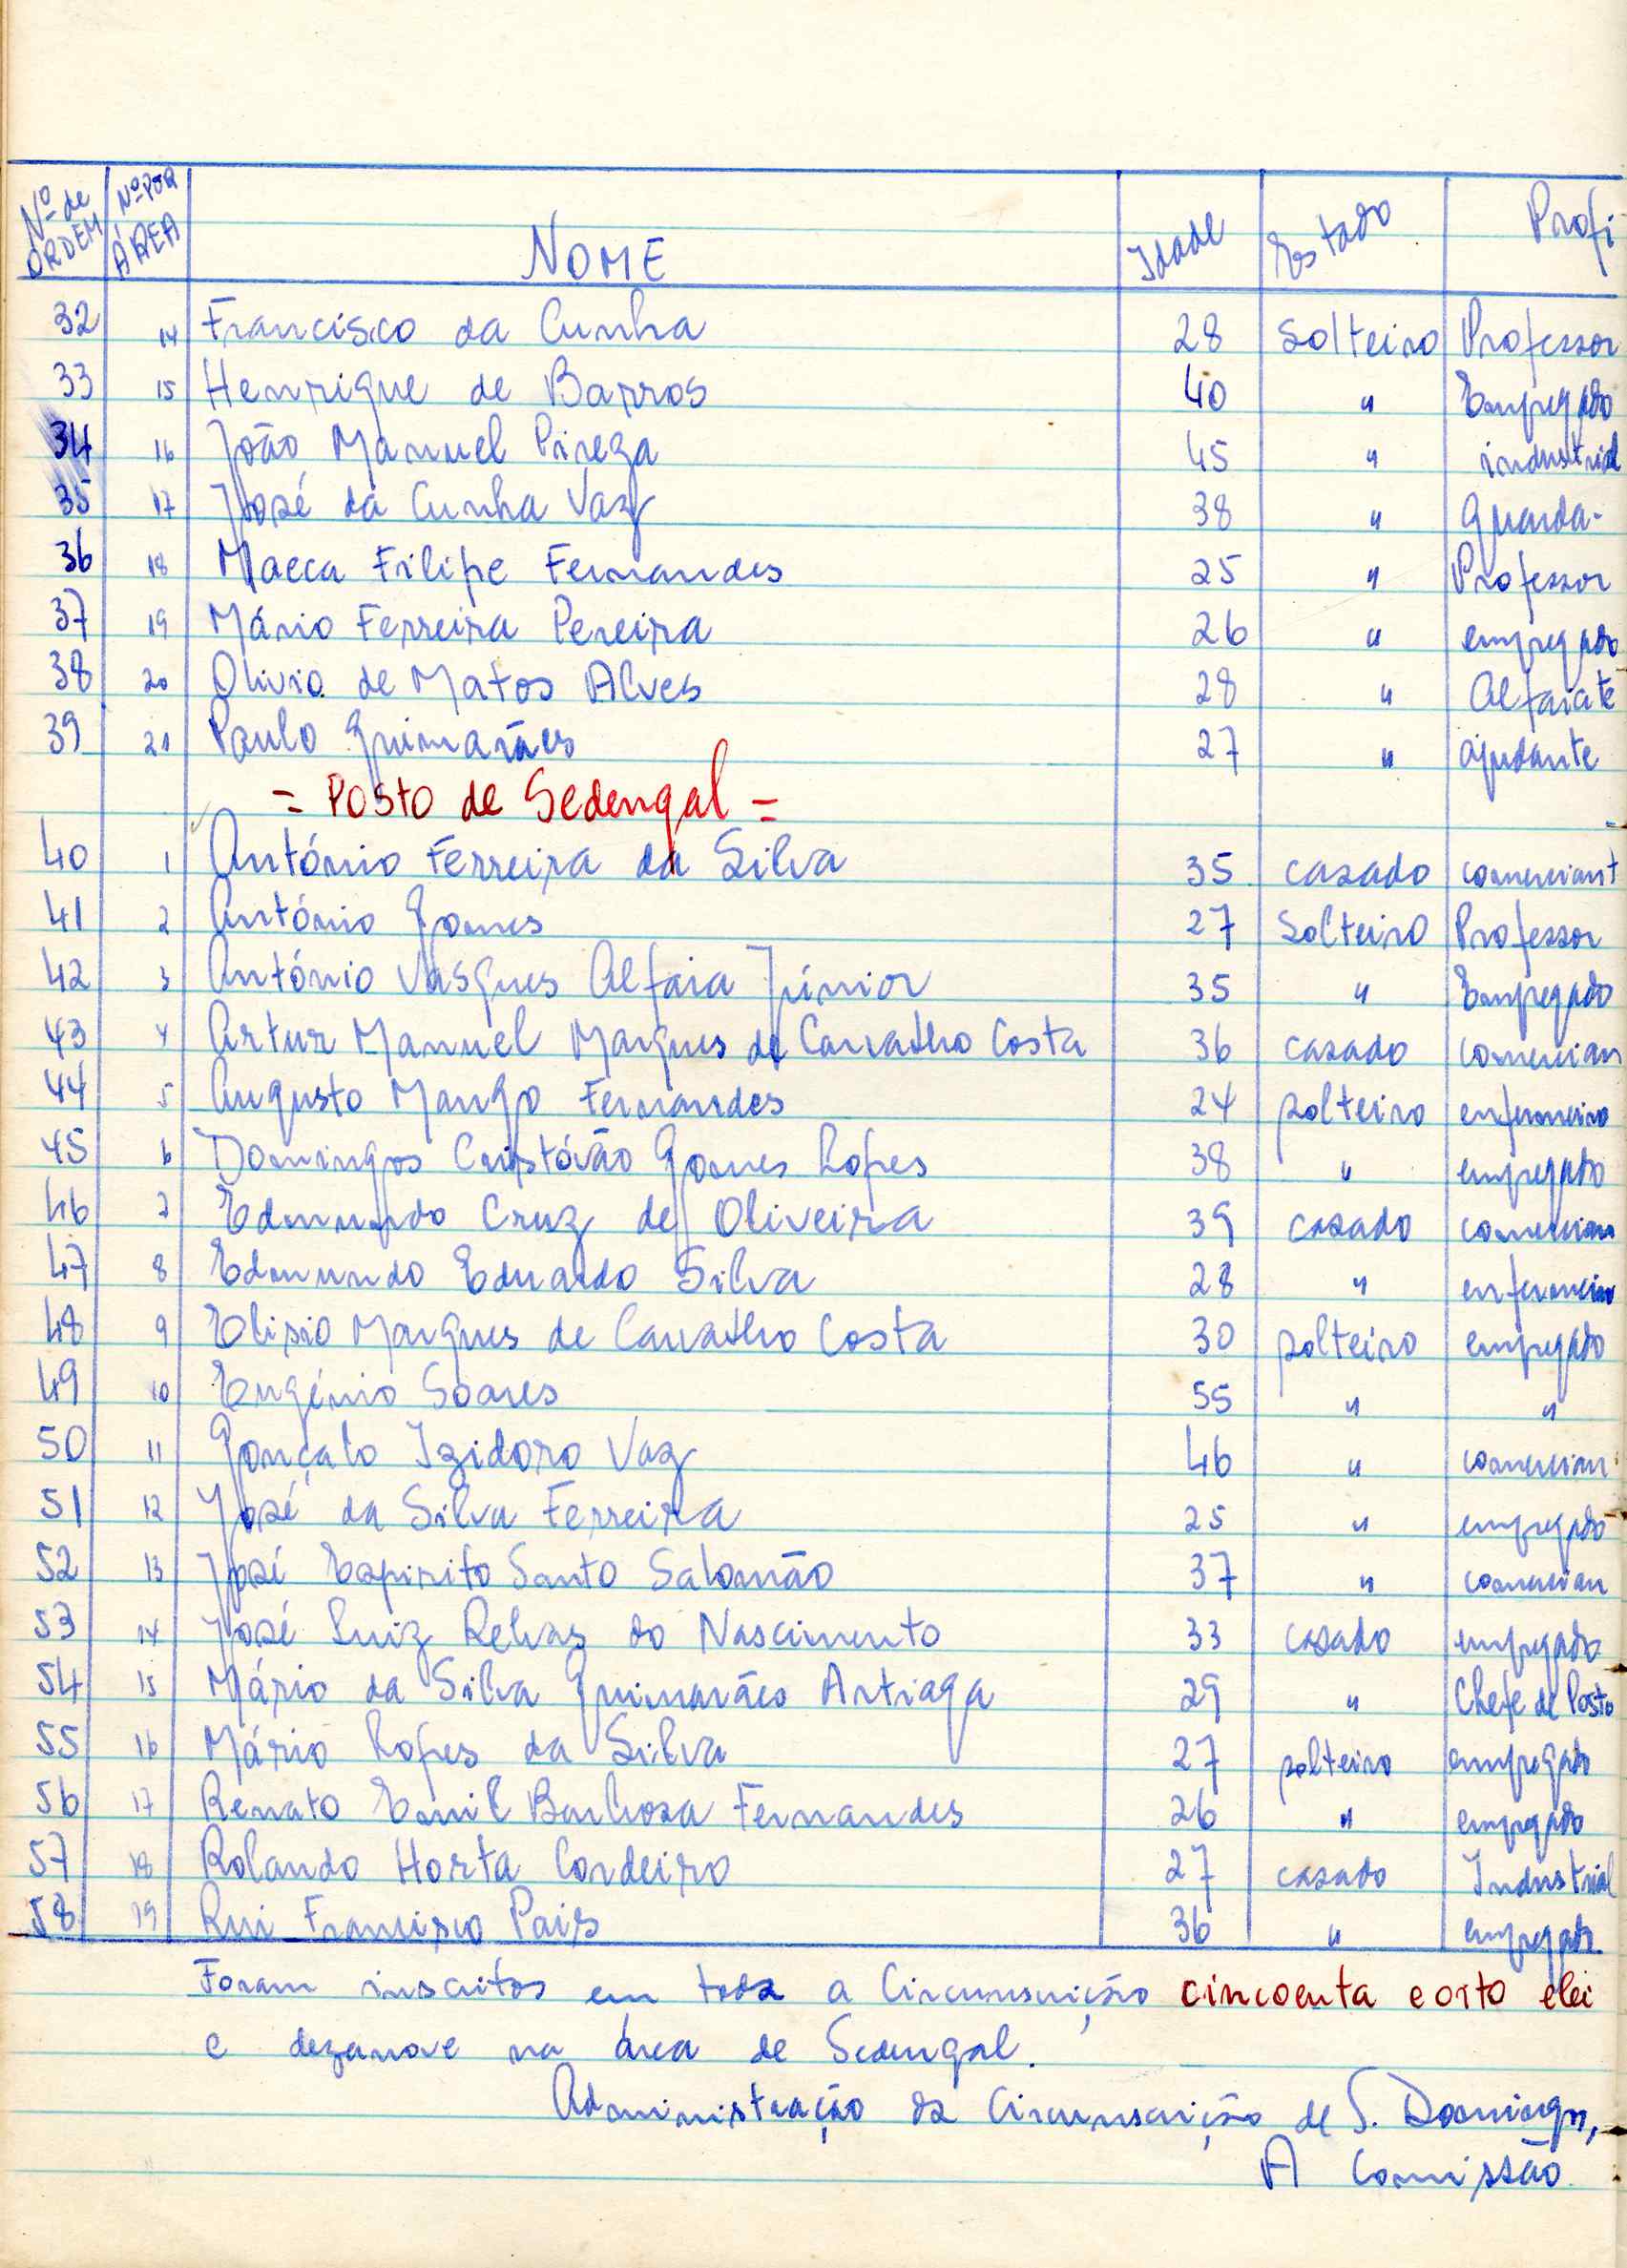 Nº de ORDEM Nº POR ÁREA NOME Idade Estado Profi
32 14 Francisco da Cunha 28 Solteiro Professor
33 15 Henrique de Barros 40 " Empregado
34 16 João Manuel Pireza 45 " industrial
35 17 José da Cunha Vaz 38 " Guarda-
36 18 Maeca Filipe Fernandes 25 " Professor
37 19 Mário Ferreira Pereira 26 " empregado
38 20 Olivio de Matos Alves 28 " Alfaiate
39 21 Paulo Guimarães 27 " ajudante
= Posto de Sedengal =
40 1 António Ferreira da Silva 35 casado comerciant
41 2 António Gomes 27 Solteiro Professor
42 3 António Vasques Alfaia Júnior 35 " Empregado
43 4 Artur Manuel Marques de Carvalho Costa 36 casado comercian
44 5 Augusto Mango Fernandes 24 solteiro enfermeiro
45 6 Domingos Cristóvão Gomes Lopes 38 " empregado
46 7 Edmundo Cruz de Oliveira 39 casado comercian
47 8 Edmundo Eduardo Silva 28 " enfermeiro
48 9 Elisio Marques de Carvalho Costa 30 solteiro empregado
49 10 Eugénio Soares 55 " "
50 11 Gonçalo Izidoro Vaz 46 " comercian
51 12 José da Silva Ferreira 25 " empregado
52 13 José Espirito Santo Salomão 37 " comercian
53 14 José Luiz Relvas do Nascimento 33 casado empregado
54 15 Mário da Silva Guimarães Artiaga 29 " Chefe de Posto
55 16 Mário Lopes da Silva 27 solteiro empregado
56 17 Renato Emil Barbosa Fernandes 26 " empregado
57 18 Rolando Horta Cordeiro 27 casado Industrial
58 19 Rui Francisco Pais 36 " empregado
Foram inscritos em toda a Circunscrição cincoenta e oito elei
e dezanove na área de Sedengal.
Administração da Circunscrição de S. Domingos,
A Comissão